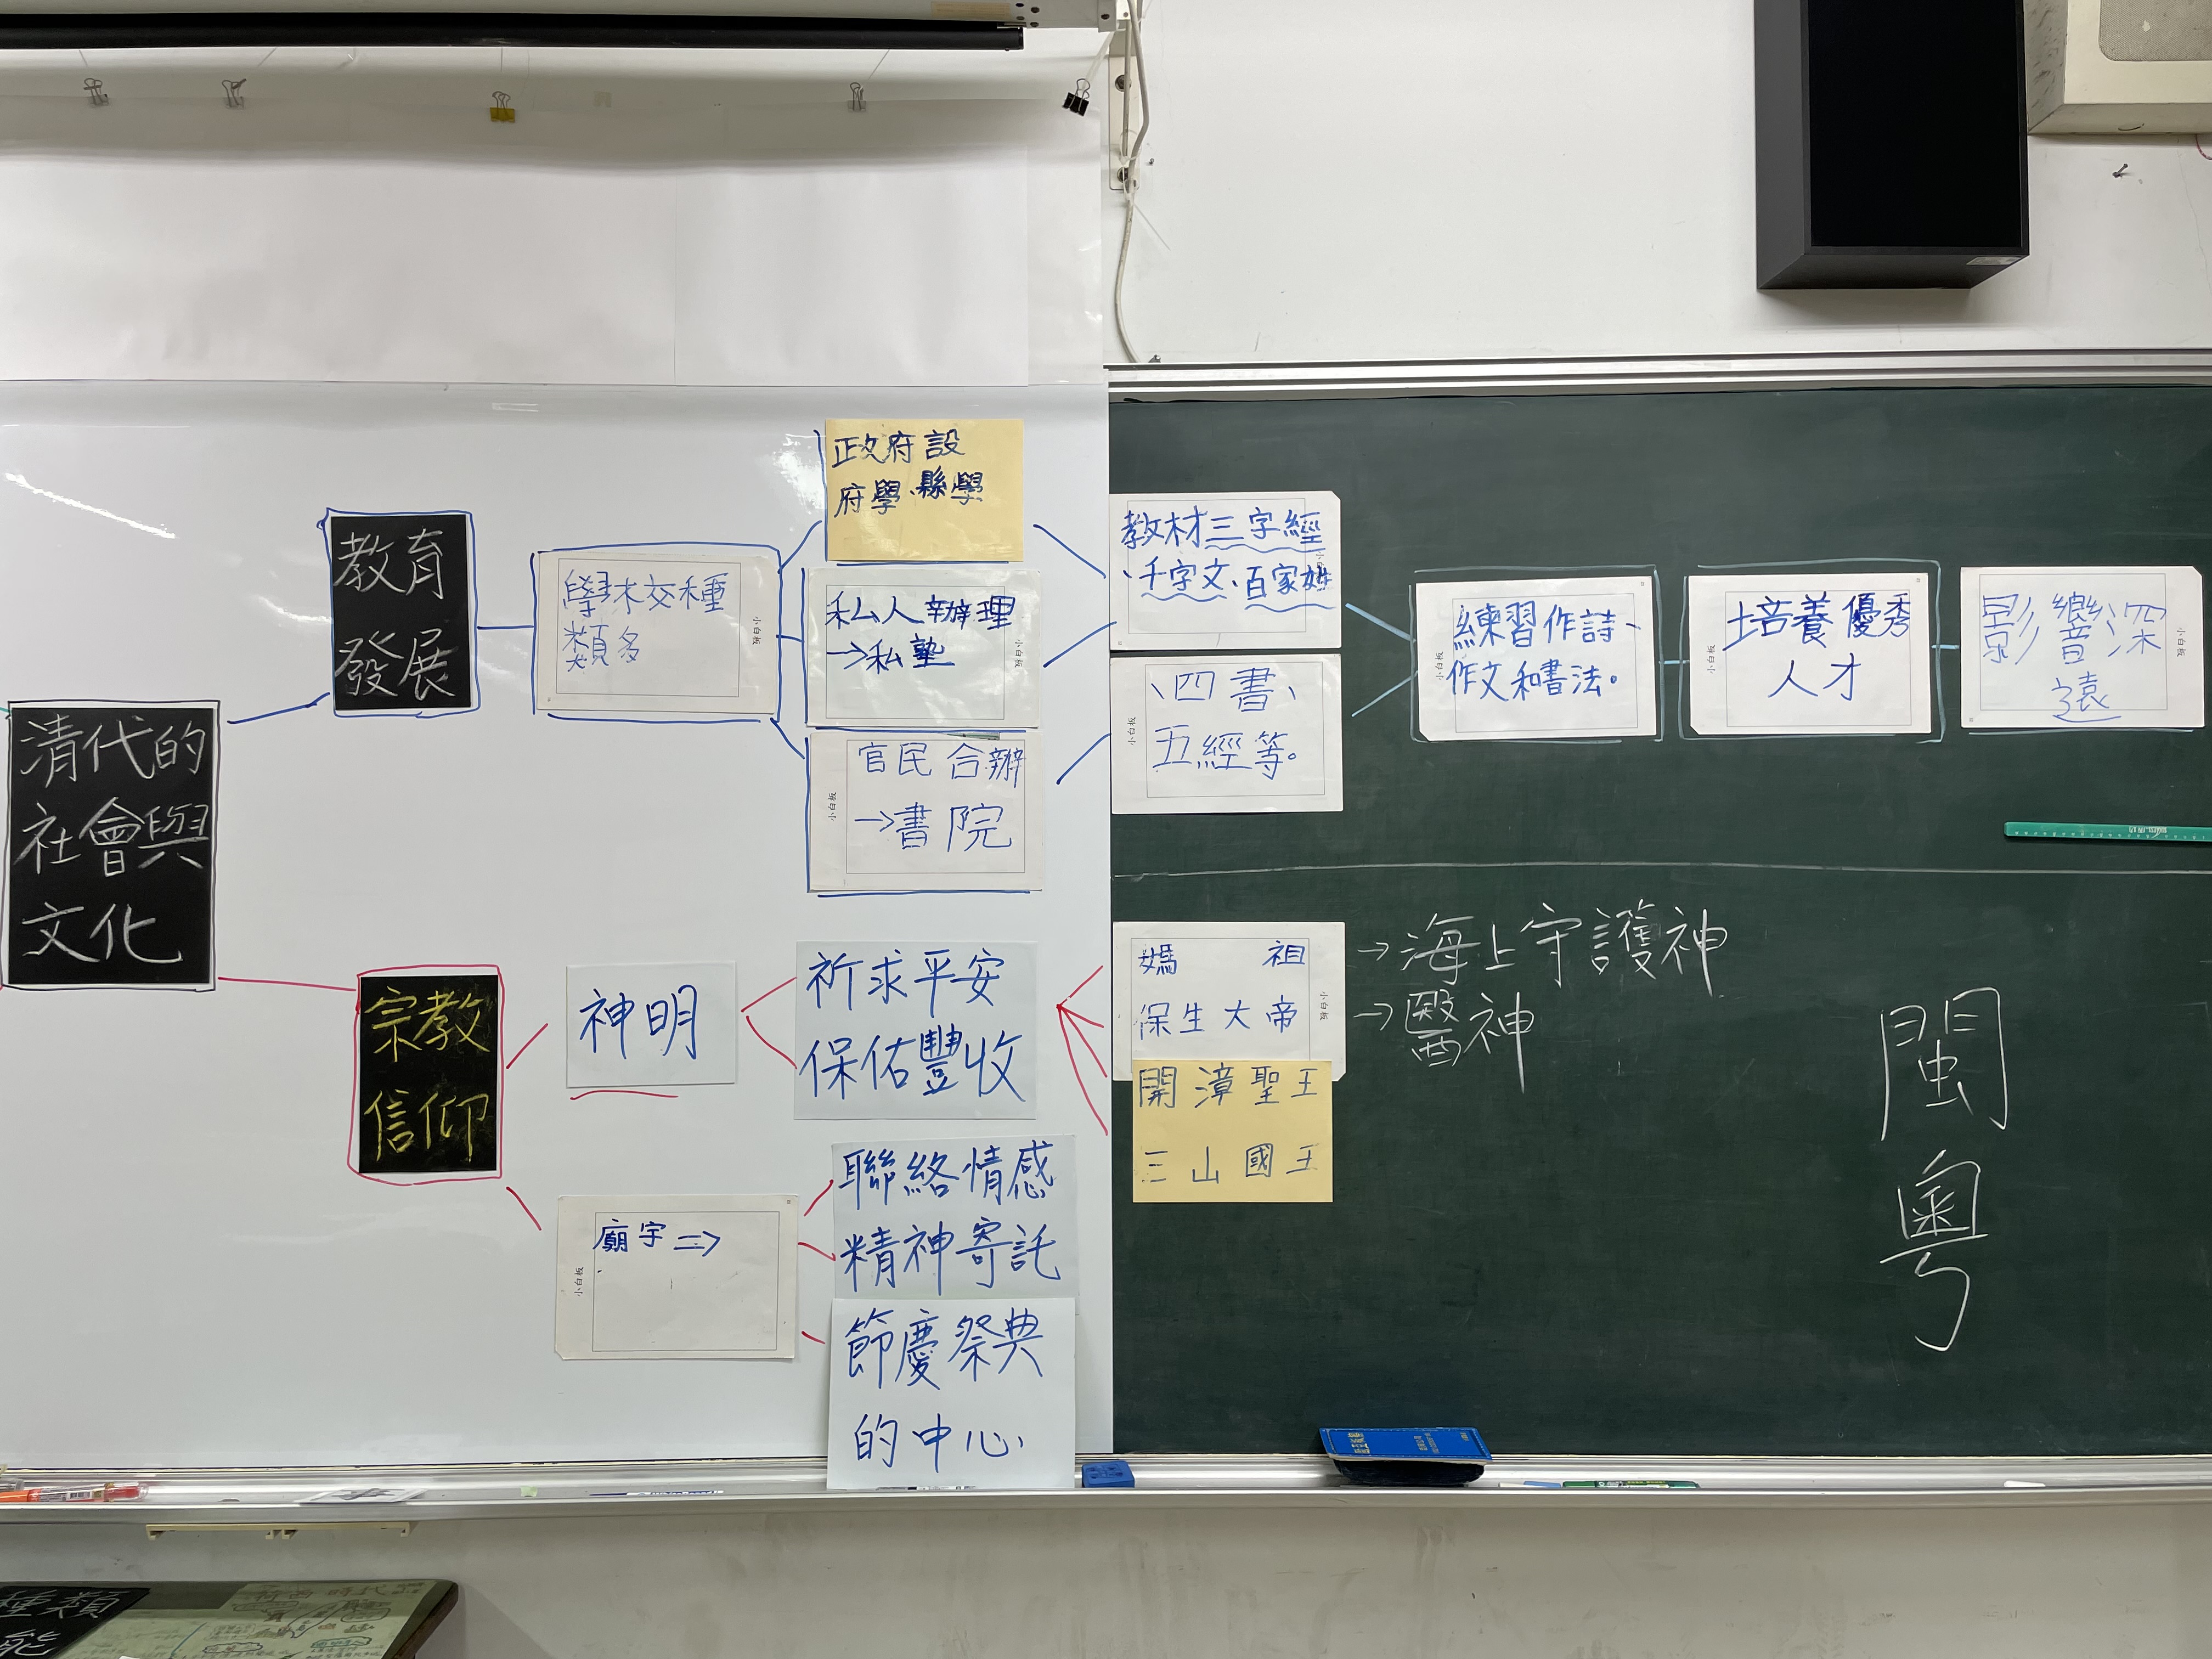 清代的
社會與
文化
教育
發展
學校種
類多
政府設
府學、縣學
私人辦理
→私塾
官民合辦
→書院
教材三字經
、千字文、百家姓
、四書、
五經等。
練習作詩、
作文和書法。
培養優秀
人才
影響深
遠
宗教
信仰
神明
祈求平安
保佑豐收
媽祖
→海上守護神
保生大帝
→醫神
開漳聖王
三山國王
廟宇⇒
聯絡情感
精神寄託
節慶祭典
的中心
閩
粵
小白板
小白板
小白板
小白板
小白板
小白板
小白板
小白板
小白板
種類
能